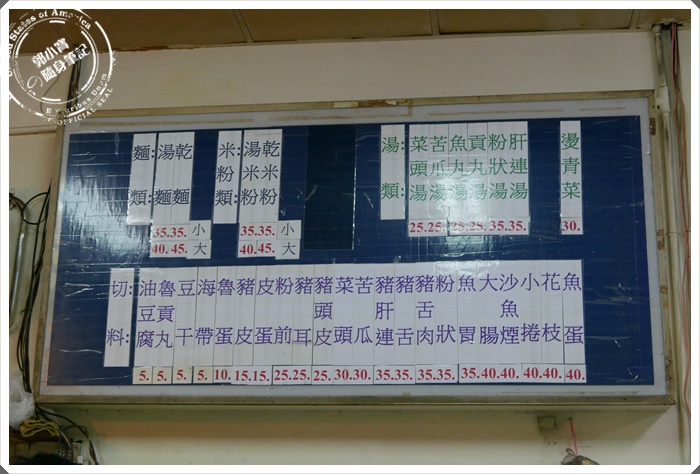 郭小寶
の隨身筆記
States of America
OFFICIAL SEAL
麵類:
湯麵 35. 40.
乾麵 35. 45.
小 大
米粉類:
湯米粉 35. 40.
乾米粉 35. 45.
小 大
湯類:
菜頭湯 25.
苦瓜湯 25.
魚丸湯 25.
貢丸湯 25.
粉狀湯 35.
肝連湯 35.
燙青菜 30.
切料:
油豆腐 5.
魯貢丸 5.
豆干 5.
海帶 5.
魯蛋 10.
豬皮 15.
皮蛋 15.
粉前 25.
豬耳 25.
豬頭皮 25.
菜頭 30.
苦瓜 30.
豬肝連 35.
豬舌 35.
豬舌肉 35.
粉狀 35.
魚胃 35.
大腸 40.
沙魚煙 40.
小捲 40.
花枝 40.
魚蛋 40.